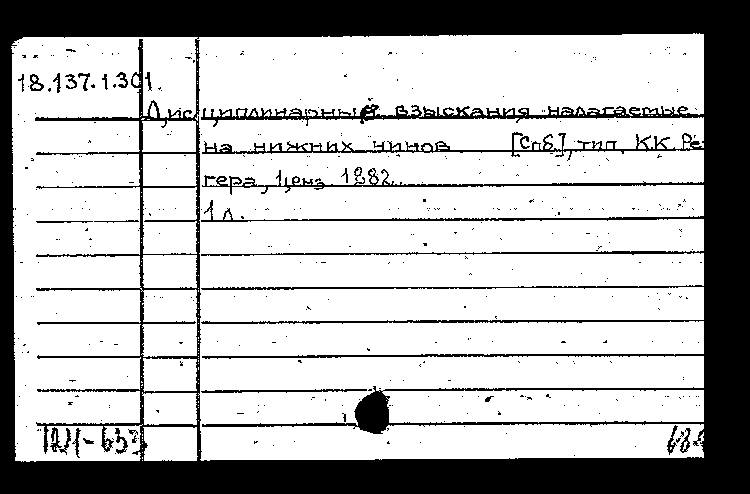 18.137.1.301.
Дисциплинарные взыскания налагаемые
на нижних чинов [Спб], тип. К.К. Ре-
гера, ценз. 1882.
1 л.